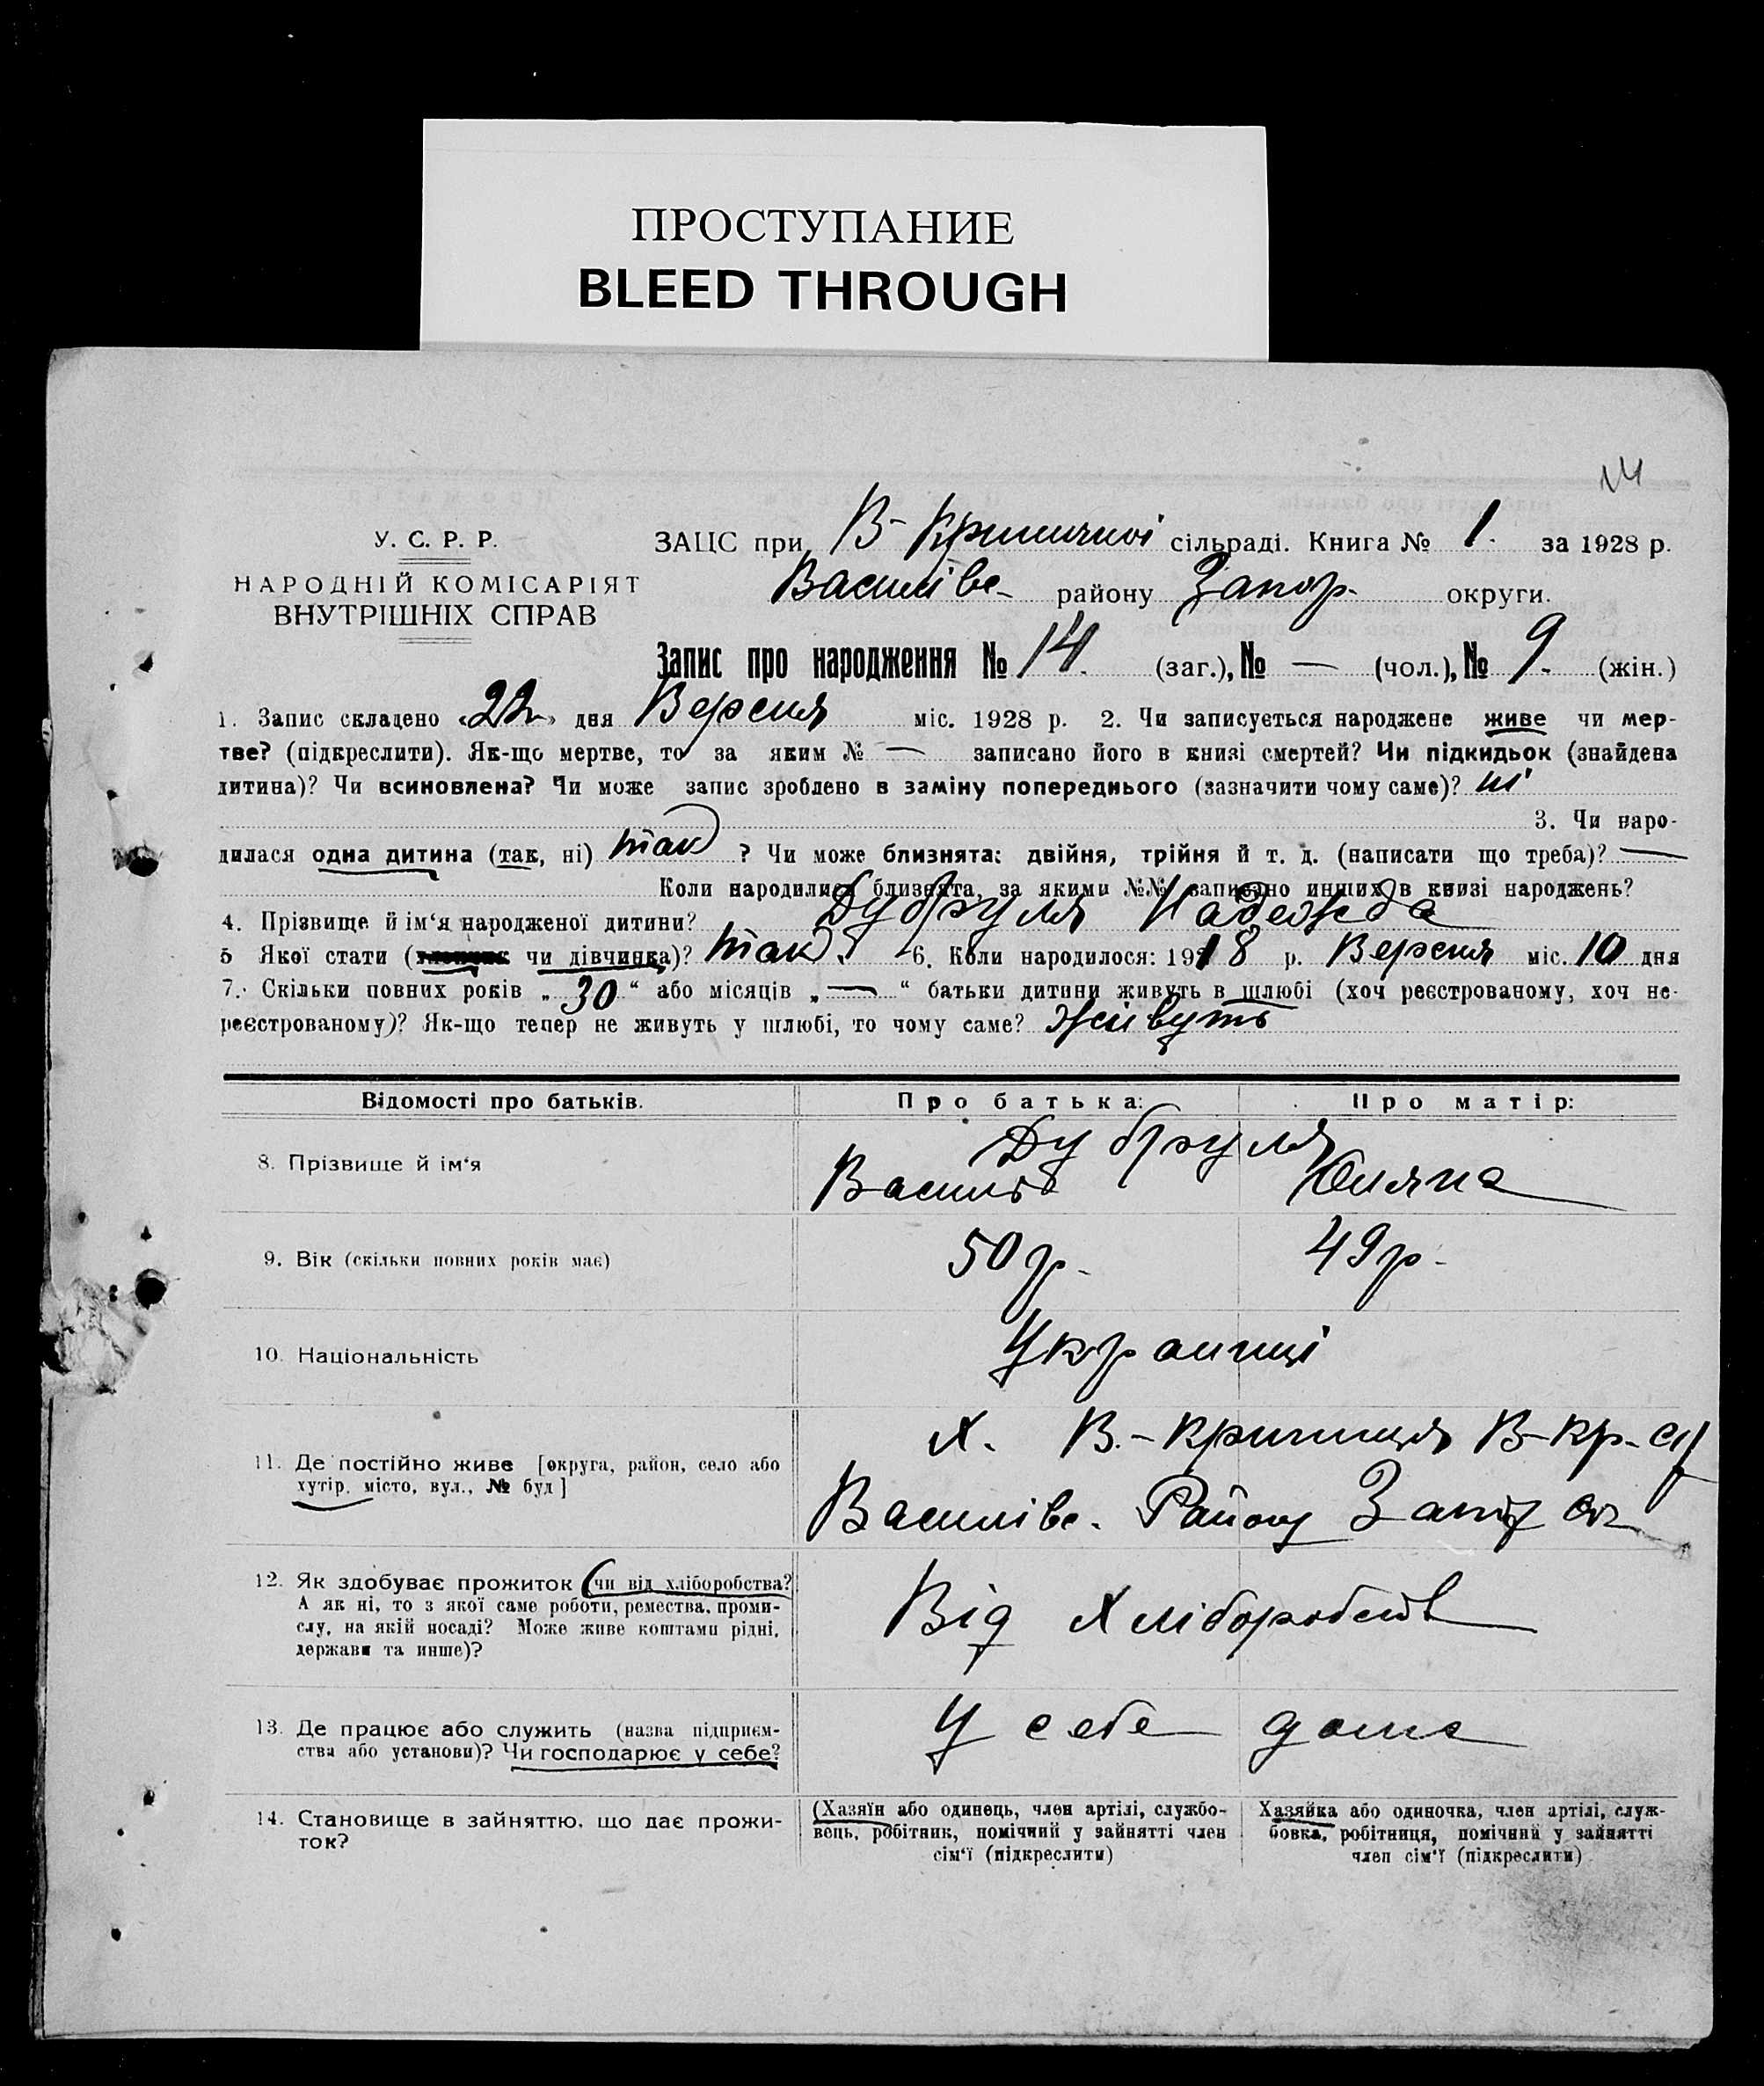 ПРОСТУПАНИЕ
BLEED THROUGH
14
У. С. Р. Р.
НАРОДНІЙ КОМІСАРІЯТ
ВНУТРІШНІХ СПРАВ
ЗАЦС при В-Криничної сільраді. Книга № 1. за 1928 р.
Василівс- району Запор- округи.
Запис про народження № 14. (заг.), № — (чол.), № 9. (жін.)
1. Запис складено «22» дня Вересня міс. 1928 р. 2. Чи записується народжене живе чи мер-
тве? (підкреслити). Як-що мертве, то за яким № — записано його в книзі смертей? Чи підкидьок (знайдена
дитина)? Чи всиновлена? Чи може запис зроблено в заміну попереднього (зазначити чому саме)? ні
3. Чи наро-
дилася одна дитина (так, ні) так ? Чи може близнята: двійня, трійня й т. д. (написати що треба)? —
Коли народилися близнята, за якими №№ записано инших в книзі народжень?
4. Прізвище й ім‘я народженої дитини? Дубруля Надежда
5 Якої стати (хлопчик чи дівчинка)? так. 6. Коли народилося: 1918 р. Вересня міс. 10 дня
7. Скільки повних років „30“ або місяців „—“ батьки дитини живуть в шлюбі (хоч реєстрованому, хоч не-
реєстрованому)? Як-що тепер не живуть у шлюбі, то чому саме? живуть
Відомості про батьків. Про батька: Про матір:
Дубруля
8. Прізвище й ім‘я Василь Юляна
9. Вік (скільки повних років має) 50 р. 49 р.
10. Національність Украинці
11. Де постійно живе [округа, район, село або
хутір, місто, вул., № буд]
Х. В.-Криниця В-Кр-
Василівс. Району
12. Як здобуває прожиток (чи від хліборобства?
А як ні, то з якої саме роботи, ремества, проми-
слу, на якій посаді? Може живе коштами рідні,
держави та инше)?
Від Хліборобств
13. Де працює або служить (назва підприєм-
ства або установи)? Чи господарює у себе?
У себе дома
14. Становище в зайняттю, що дає прожи-
ток?
(Хазяїн або одинець, член артілі, службо-
вець, робітник, помічний у зайнятті член
сім‘ї (підкреслити)
Хазяйка або одиночка, член артілі, служ-
бовка, робітниця, помічний у зайнятті
член сім‘ї (підкреслити)